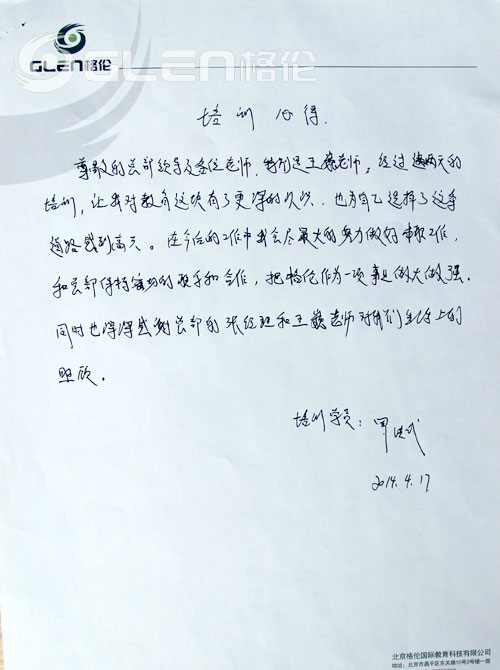 GLEN格伦
GLEN格伦
培训心得.
尊敬的总部领导及各位老师,特别是王巍老师。经过这两天的
培训,让我对教育这块有了更深的认识,也为自己选择了这条
道路感到高兴。在今后的工作中我会尽最大的努力做好本职工作,
和总部保持密切的联系和合作,把格伦作为一项事业做大做强.
同时也深深感谢总部的张经理和王巍老师对我们生活上的
照顾。
培训学员:
2014.4.17
北京格伦国际教育科技有限公司
地址:北京市昌平区东关路10号2号楼一层